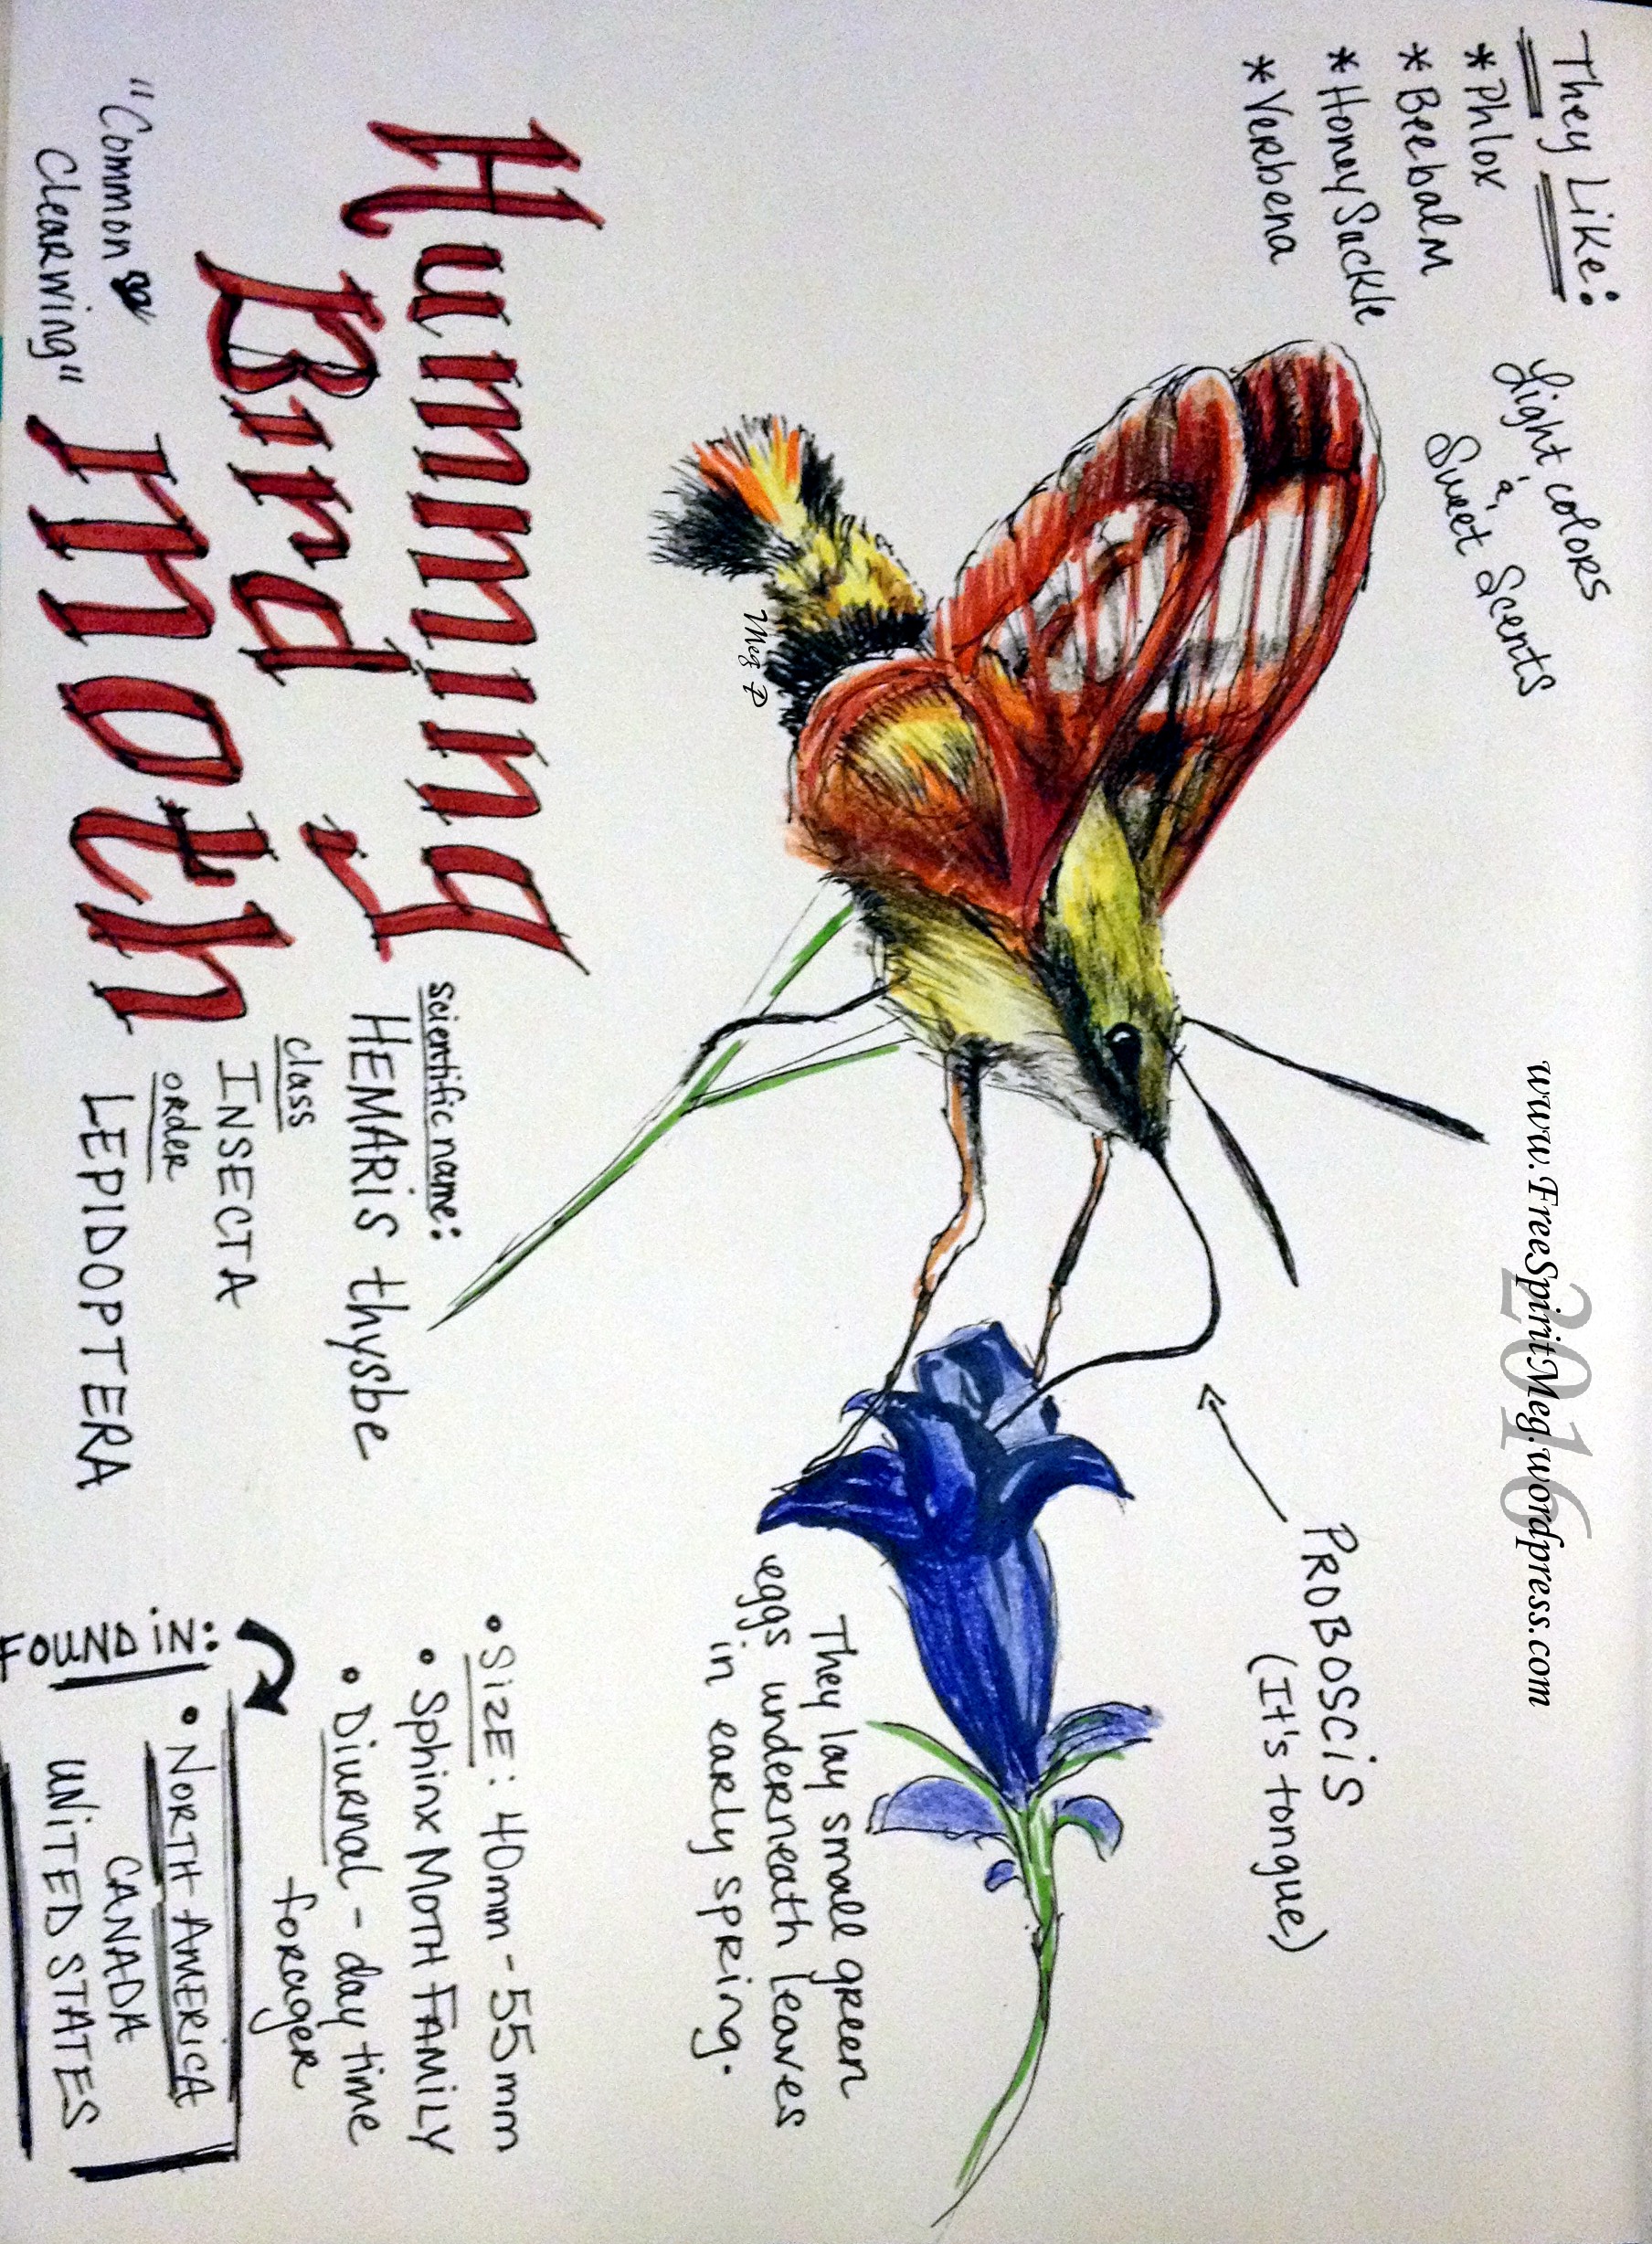 They Like:
*Phlox
*Beebalm
*HoneySuckle
*Verbena
Light colors
&
Sweet Scents
www.FreeSpiritMeg.wordpress.com
2016
PROBOSCIS
(It's tongue)
Meg P
They lay small green
eggs underneath leaves
in early spring.
Humming
Bird
Moth
"Common
Clearwing"
scientific name:
HEMARIS thysbe
class
INSECTA
order
LEPIDOPTERA
• SIZE: 40mm - 55mm
• Sphinx MOTH FAMILY
• Diurnal - day time
forager
FOUND IN:
• NORTH AMERICA
CANADA
UNITED STATES